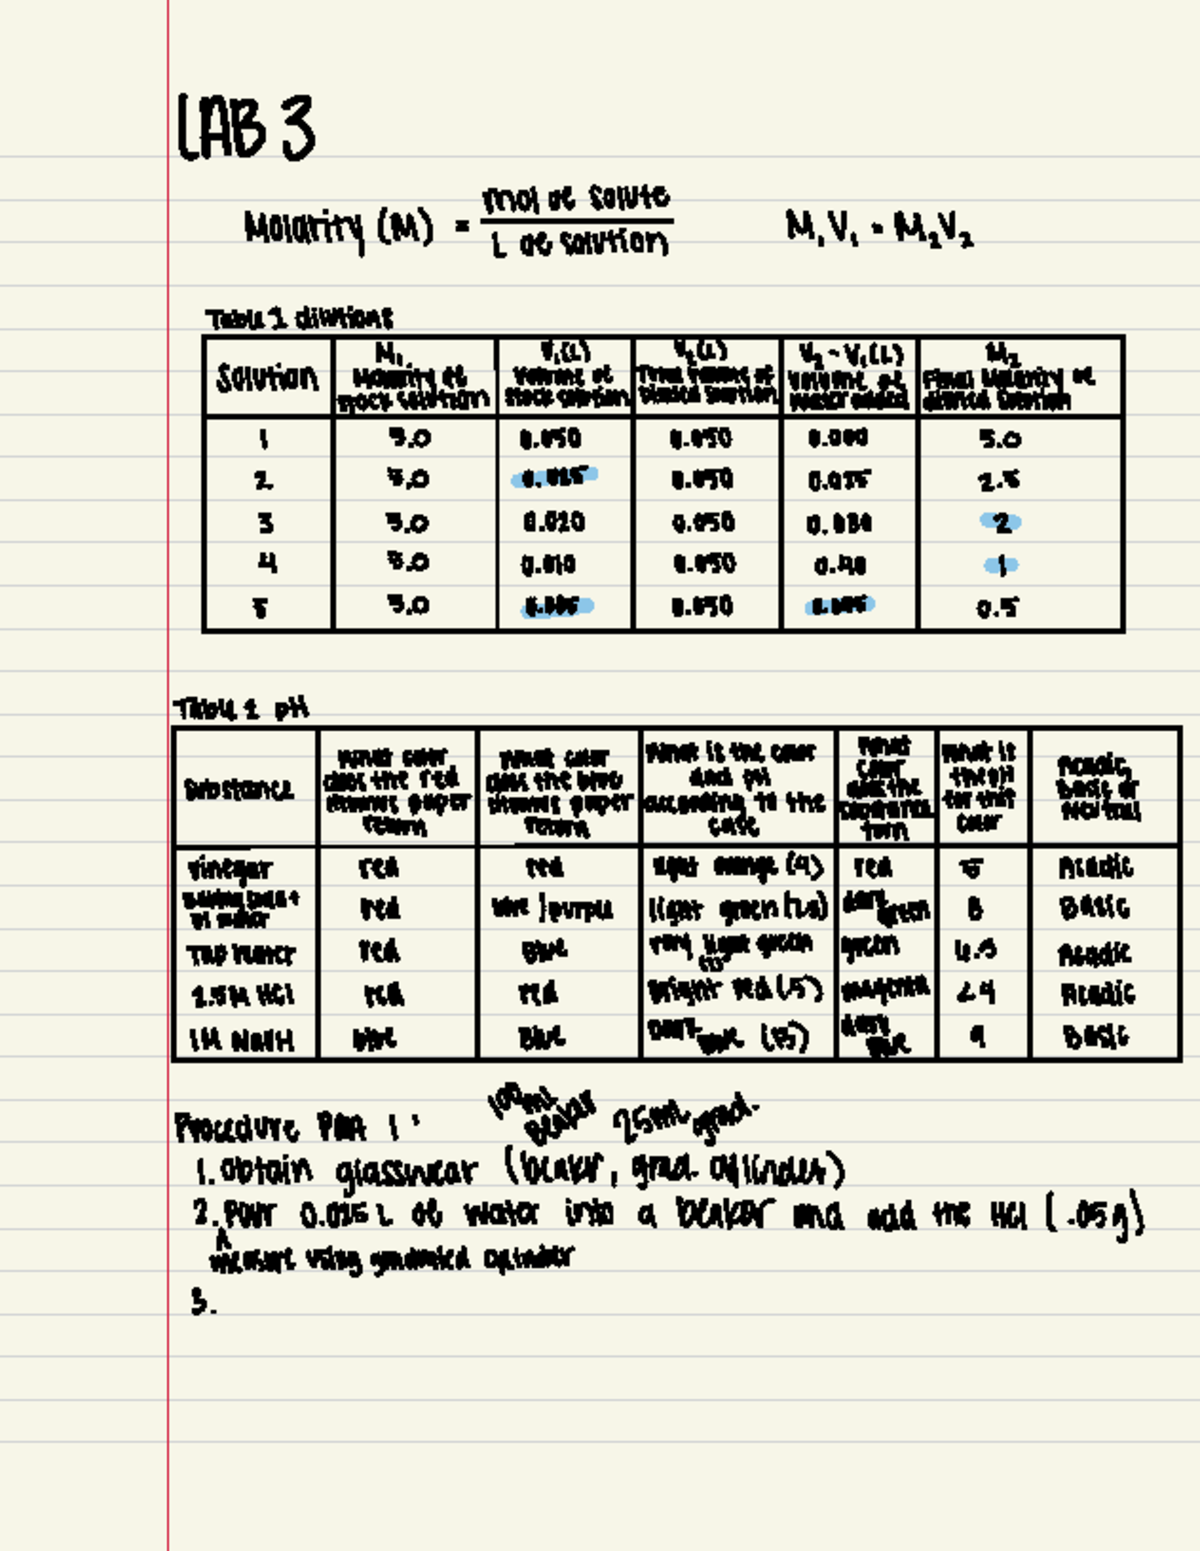 LAB 3
Molarity (M) = mol of solute / L of solution    M₁V₁ = M₂V₂
Table 1 dilutions
Solution | M₁ Molarity of stock solution | V₁(L) Volume of stock solution | V₂(L) Total volume of diluted solution | V₂ - V₁(L) Volume of water added | M₂ Final Molarity of diluted solution
1 | 5.0 | 0.050 | 0.050 | 0.000 | 5.0
2 | 5.0 | 0.025 | 0.050 | 0.025 | 2.5
3 | 5.0 | 0.020 | 0.050 | 0.030 | 2
4 | 5.0 | 0.010 | 0.050 | 0.40 | 1
5 | 5.0 | 0.050 | 0.5
Table 2 pH
Substance | What color does the red litmus paper return | What color does the blue litmus paper return | What is the color and pH according to the case | What color does the substance turn | What is the pH for that color | Acadic, basic or neutral
vinegar | red | red | light orange (4) | red | 5 | Acadic
Baking soda + DI water | red | blue / purple | light green | dark green | 8 | Basic
Tap water | red | Blue | very light green | green | 6.5 | Acadic
2.5M HCl | red | red | bright red (.5) | magenta | <4 | Acadic
1M NaOH | blue | Blue | Dark blue (13) | dark blue | 9 | Basic
100mL Beaker 25mL grad.
Procedure Part 1:
1. Obtain glasswear (beaker, grad. cylinder)
2. Pour 0.025 L of water into a beaker and add the HCl (.05g)
^ measure using graduated cylinder
3.